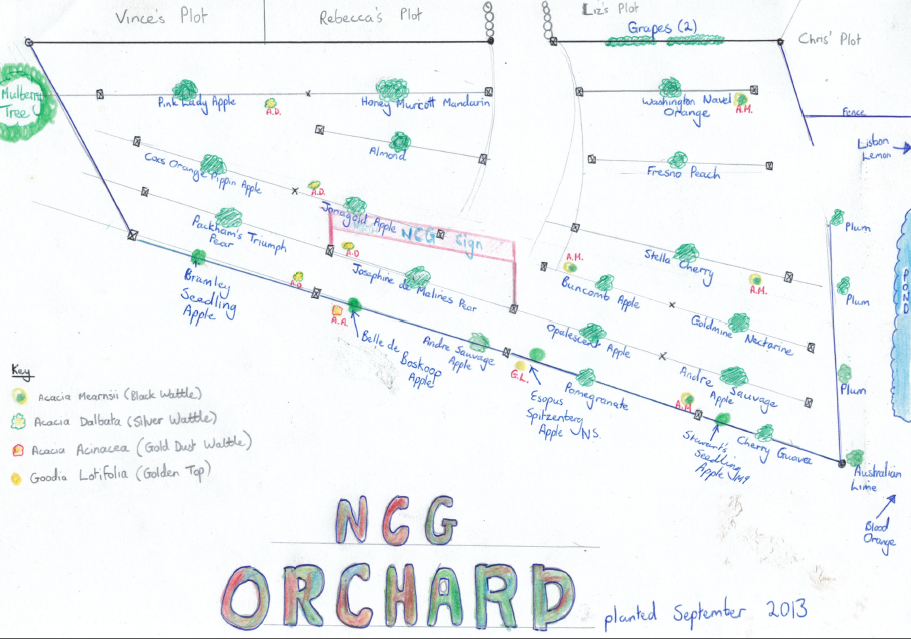 Vince's Plot
Rebecca's Plot
Liz's Plot
Grapes (2)
Chris' Plot
Mulberry
Tree
Pink Lady Apple
A.D.
Honey Murcott Mandarin
Washington Navel
Orange
A.M.
Fence
Lisbon
Lemon
Almond
Fresno Peach
Coxs Orange Pippin Apple
A.D.
Jonagold Apple
NCG Sign
Packham's Triumph
Pear
A.D
Josephine de Malines Pear
Stella Cherry
A.M.
A.M.
Buncomb Apple
Goldmine Nectarine
Plum
Plum
Plum
POND
Bramley
Seedling
Apple
A.D.
A.A.
Belle de
Boskoop
Apple
Andre Sauvage
Apple
Opalescent Apple
Andre Sauvage
Apple
G.L.
Esopus
Spitzenberg
Apple NS.
Pomegranate
A.M
Stewart's
Seedling
Apple
Cherry Guava
Australian
Lime
Blood
Orange
Key
Acacia Mearnsii (Black Wattle)
Acacia Dalbata (Silver Wattle)
Acacia Acinacea (Gold Dust Wattle)
Goodia Lotifolia (Golden Top)
NCG
ORCHARD
planted September 2013